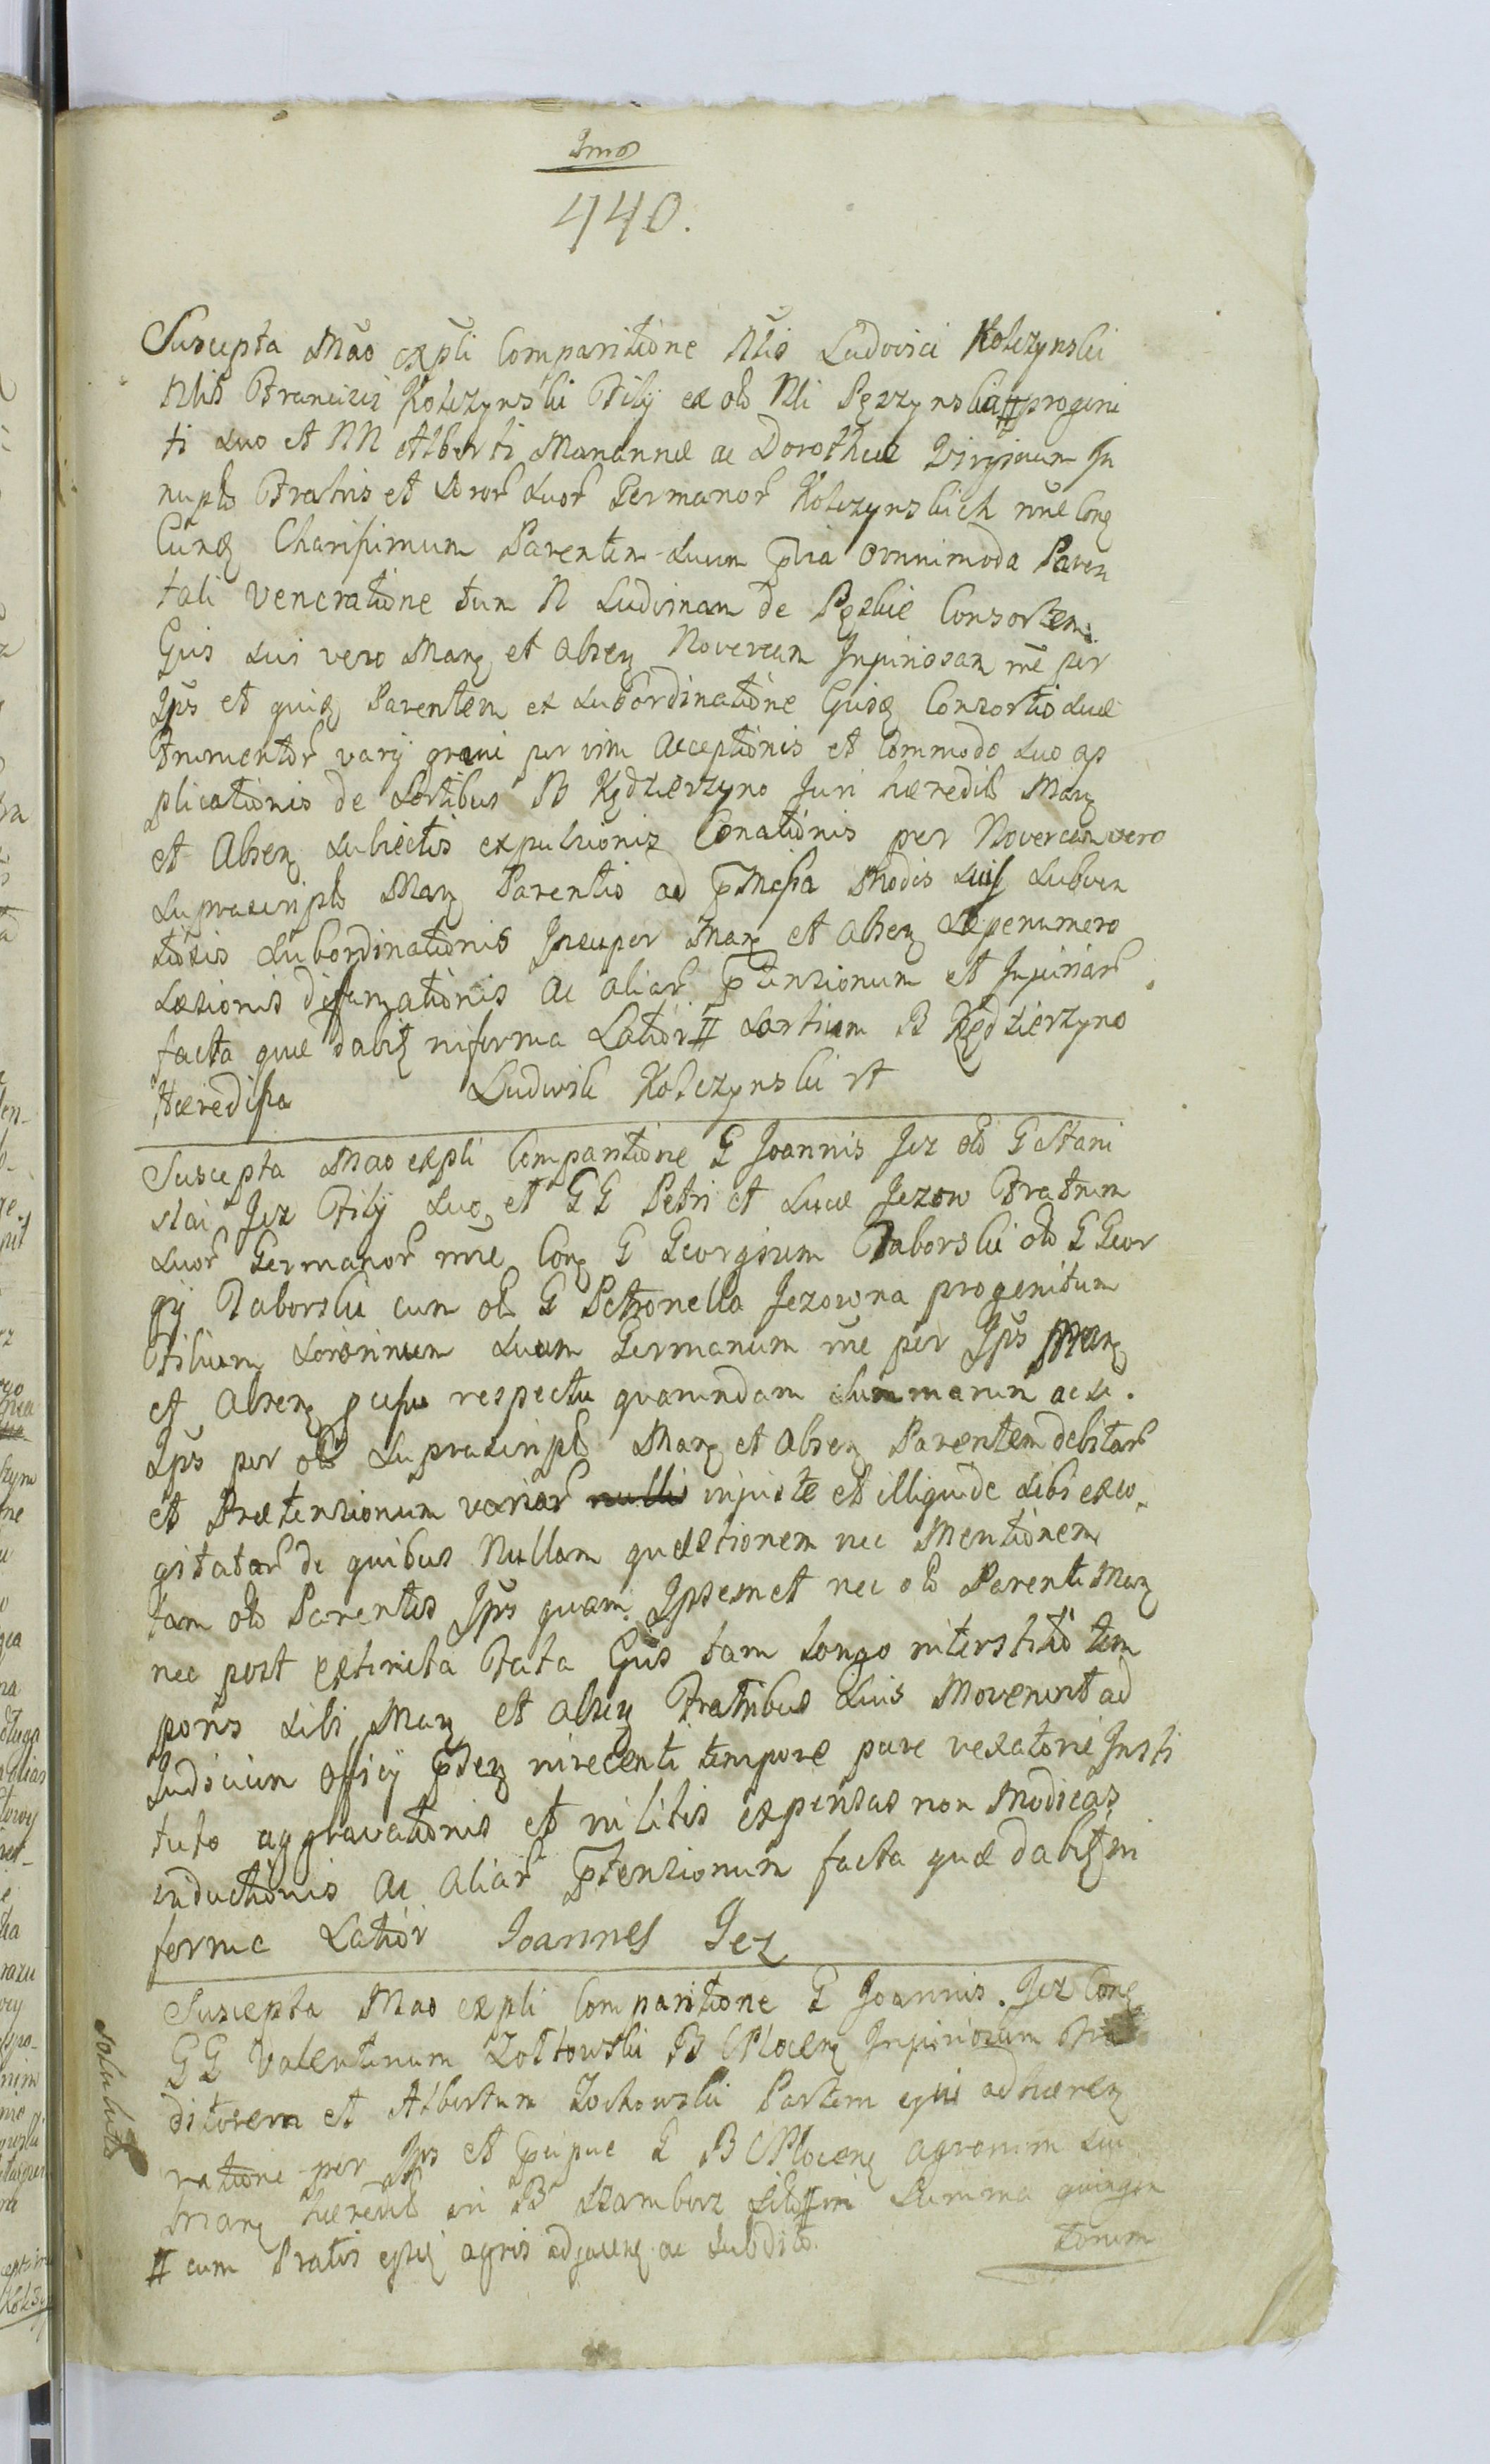 Imo
440.
Suscepta Mao expli Comparitione Nlis Ludovici Kolczynski
Nlis Francisci Kolczynski Filij ex olo Nli Pęszynska # progeni
ti suo et NN Alberti Mariannæ ac Dorotheæ Virginum In
nupt Fratris et Soror suor Germanor Kolczynskich nne Conq
Cunq Charissimum Parentem suum pria omnimoda Paren
tali veneratione tum N Ludvinam de Pęskie Consortem
Ejus sui vero Manq et Absenq Novercam Injuriosam rne per
Ips et quidq Parentem ex subordinatione Ejusq Consortis suæ
Frumentor varij grani per vim acceptionis et Commodo suo ap
plicationis de sortibus B Kędzierzyno Juri hæredit Manq
et Absenq subiectis expulsionis Conationis per Novercam vero
suprascript Manq Parentis ad pmissa Modis suis subven
tiosis subordinationis Insuper Manq et Absenq sæpenumero
Læsionis diffamationis ac aliar ptensionum et Injuriar
facta quæ dabit in forma Latior # sortium B Kędzierzyno
Hæredissa Ludwik Kolczynski rt
Suscepta Mao expli Comparitione G Joannis Jez olo G Stani
slai Jez Filij suo et GG Petri et Lucæ Jezow Fratrum
suor Germanor nne Conq G Georgium Taborski olo G Geor
gij Taborski cum olo G Petronella Jezowna progenitum
Filium sororinum suum Germanum rne per Ips Manq
et Absenq respectu quarundam summarum ac si
Ips per olo suprascript Manq et Absenq Parentem debitar
et Prætensionum variar nullis injuste et illiquide sibi exco
gitatar de quibus Nullam quæstionem nec Mentionem
tam olo Parentis Ips quam Ipsemet nec olo Parenti Manq
nec post extincta Fata Ejus tam longo interstitio tem
poris sibi Manq et Absenq Fratribus suis Moverint ad
Judicium Officij pdenq in recenti tempore pure vexatorie Insti
tuto aggravationis et in litis expensas non Modicas
inductionis ac aliar ptensionum facta quæ dabit in
forma Latior Joannes Jez
Suscepta Mao expli Comparitione G Joannis Jez Conq
GG Valentinum Zoltowski B CPlocenq Injuriosum
ditorem et Albertum Zochowski Partem eqni adhærenq
ratione per Ips et pcipue G B CPlocenq agrorum sui
Manq hæredit in B Szamborz sitor # in summa quingen
# cum Pratis agris adjacenq ac subdito torum
solutum